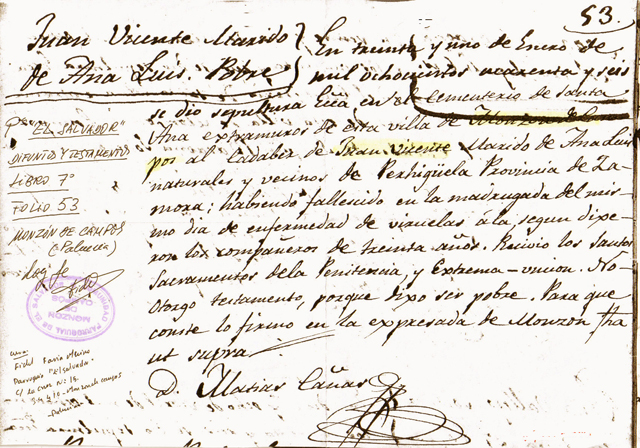 53.
Juan Vicente Marido
de Ana Luis. Pobre
En treinta y uno de Enero de
mil ochocientos cuarenta y seis
se dio sepultura Ecca, en el Cementerio de Santa
Ana extramuros de esta villa de Monzon de Cam
pos al cadaber de Juan Vicente Marido de Ana Luis
naturales y vecinos de Perhiguela Provincia de Za
mora; habiendo fallescido en la madrugada del mis
mo dia de enfermedad de viruelas á la, segun dixe
ron los compañeros de treinta años. Recivio los Santos
Sacramentos de la Penitencia, y Extrema-uncion. No
Otorgo testamento, porque dixo ser pobre. Para que
conste lo firmo en la expresada de Monzon fha
ut supra
D. Matias Cañas
Pª "EL SALVADOR"
DIFUNTOS Y TESTAMENTOS
LIBRO 7º
FOLIO 53
MONZÓN DE CAMPOS
(Palencia)
Doy fe
PARROQUIAL DE EL SAL
MONZON
DE
CAMPOS
Fidel
Parroquia "El Salvador"